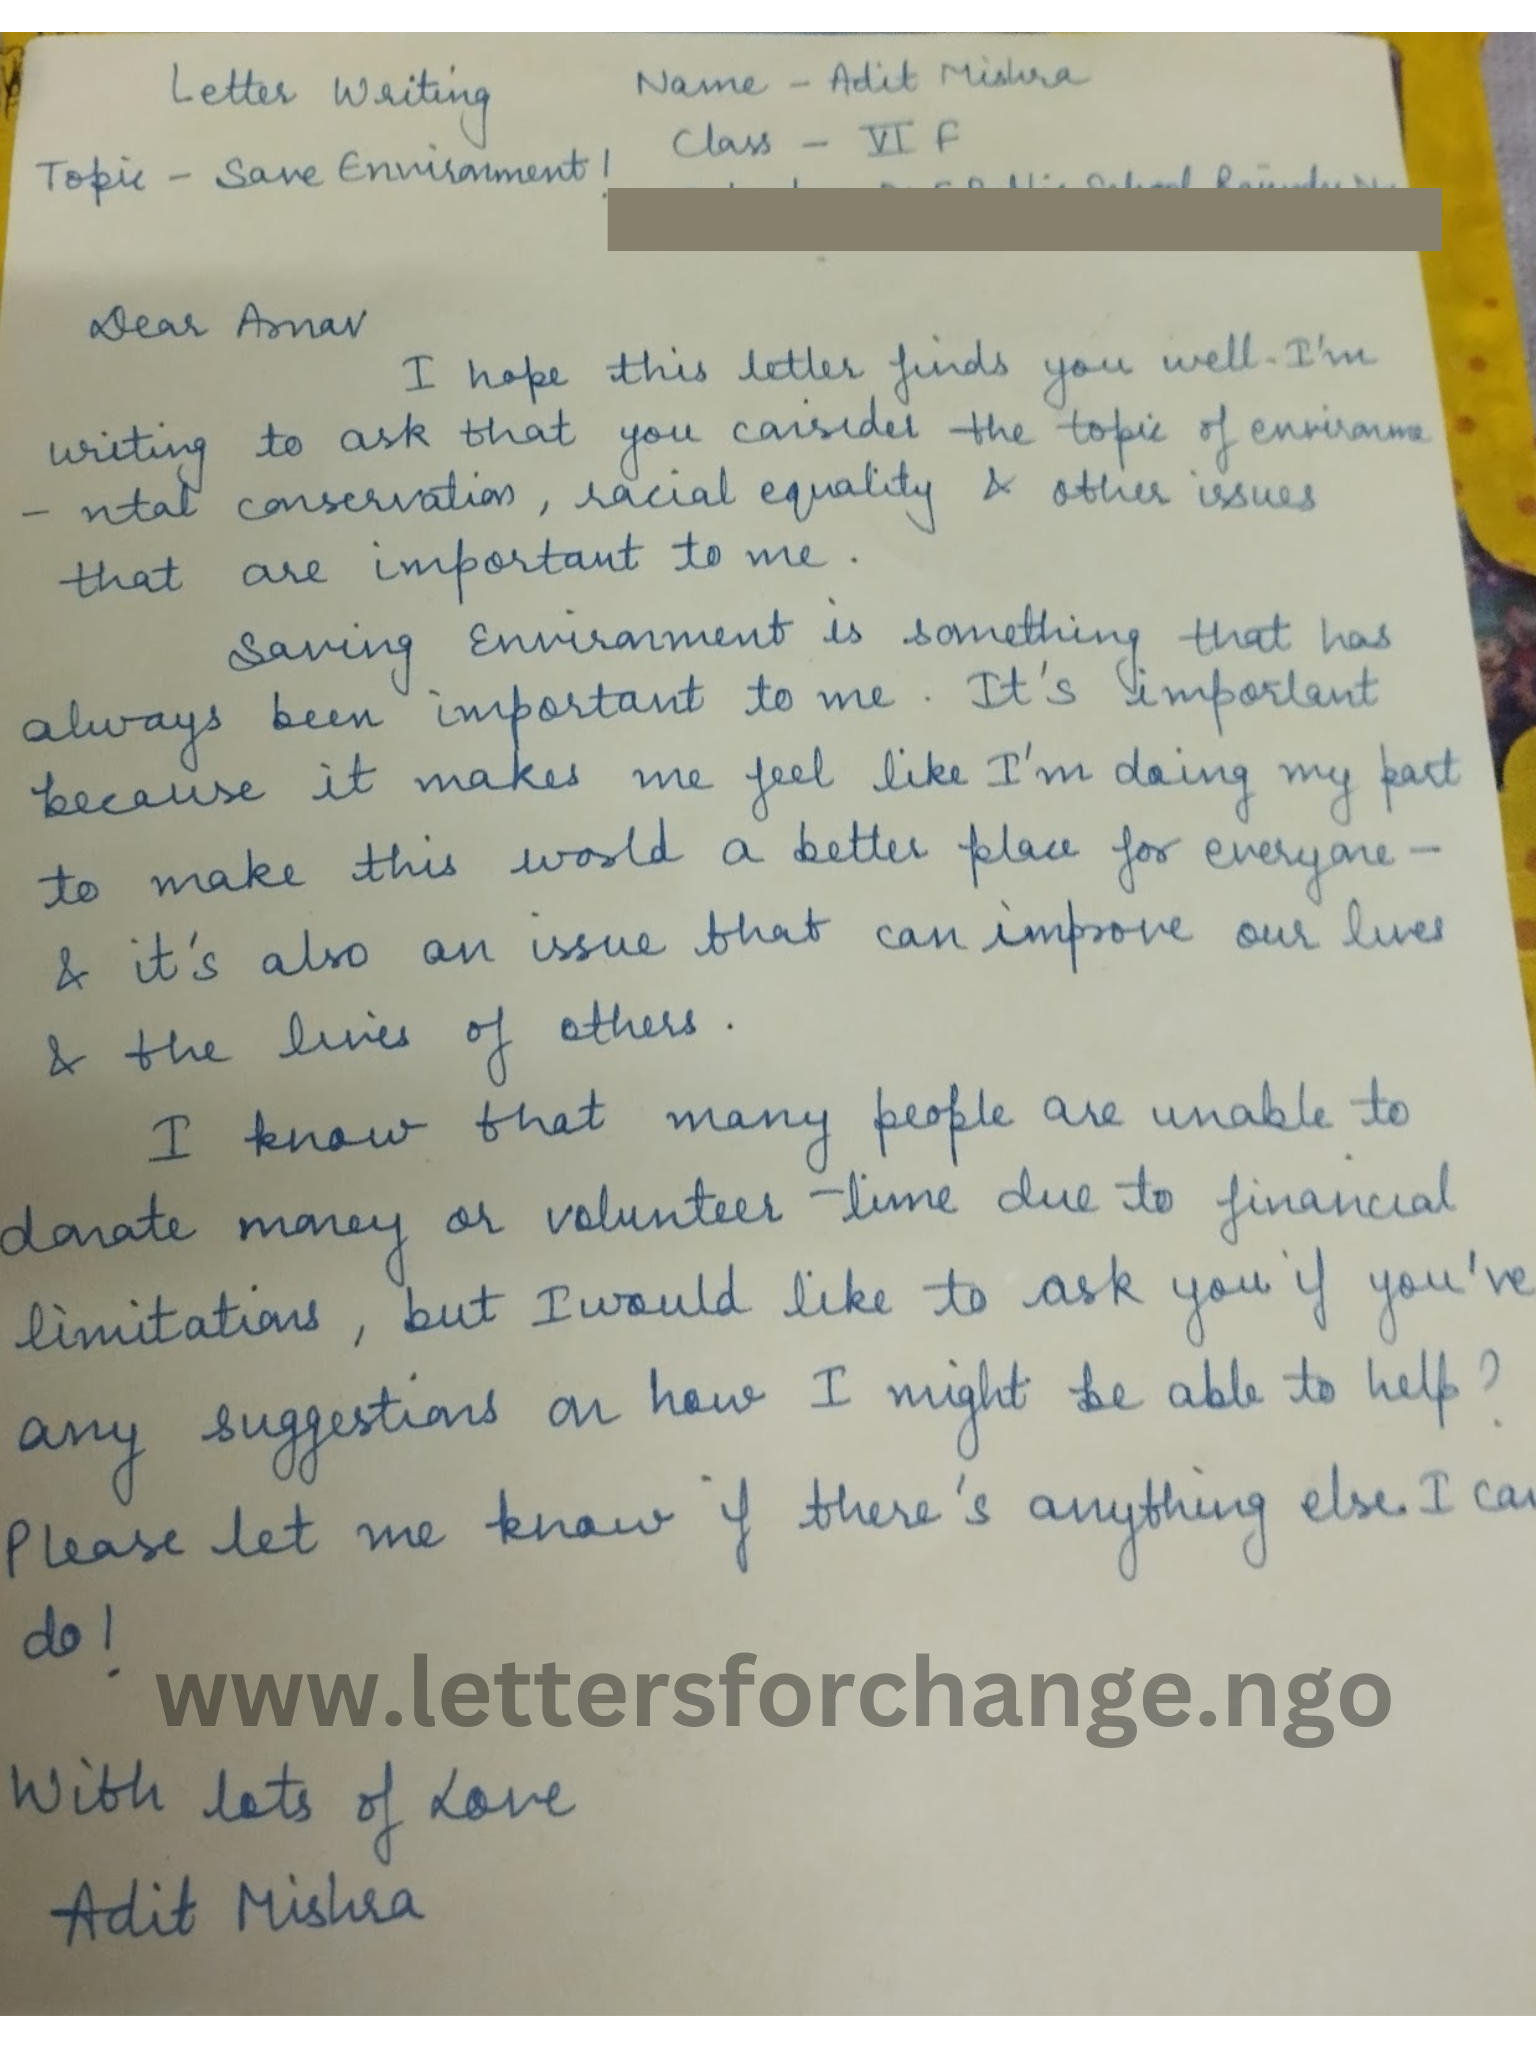 Letter Writing Name - Adit Mishra
Class - VI F
Topic - Save Environment!
Dear Arnav
I hope this letter finds you well. I'm
writing to ask that you consider the topic of environme
- ntal conservation, racial equality & other issues
that are important to me.
Saving Environment is something that has
always been important to me. It's important
because it makes me feel like I'm doing my part
to make this world a better place for everyone -
& it's also an issue that can improve our lives
& the lives of others.
I know that many people are unable to
donate money or volunteer time due to financial
limitations, but I would like to ask you if you've
any suggestions on how I might be able to help?
Please let me know if there's anything else I can
do!
www.lettersforchange.ngo
With lots of Love
Adit Mishra